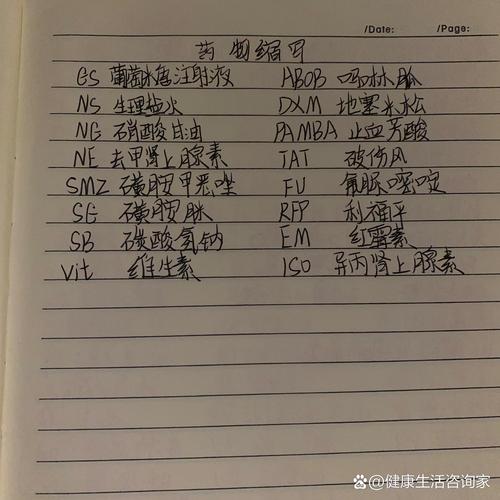 /Date: /Page:
药物缩写
GS 葡萄糖注射液 ABOB 吗啉胍
NS 生理盐水 DXM 地塞米松
NG 硝酸甘油 PAMBA 止血芳酸
NE 去甲肾上腺素 TAT 破伤风
SMZ 磺胺甲恶唑 FU 氟脲嘧啶
SG 磺胺脒 RFP 利福平
SB 碳酸氢钠 EM 红霉素
Vit 维生素 ISO 异丙肾上腺素
健康生活咨询家